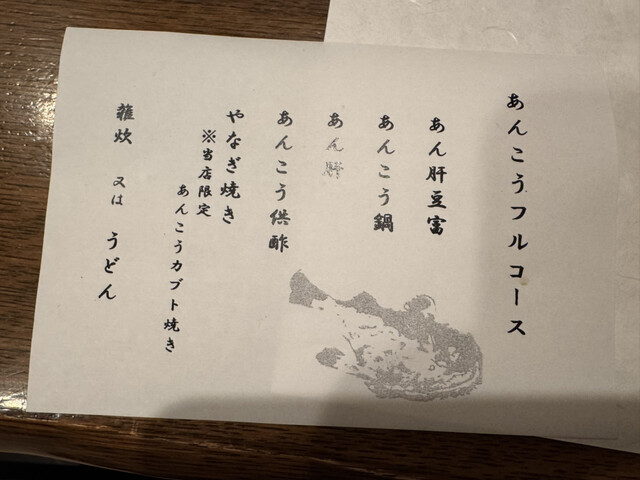 あんこうフルコース
あん肝豆富
あんこう鍋
あん
あんこう供酢
やなぎ焼き
※当店限定
あんこうカブト焼き
雑炊 又は うどん